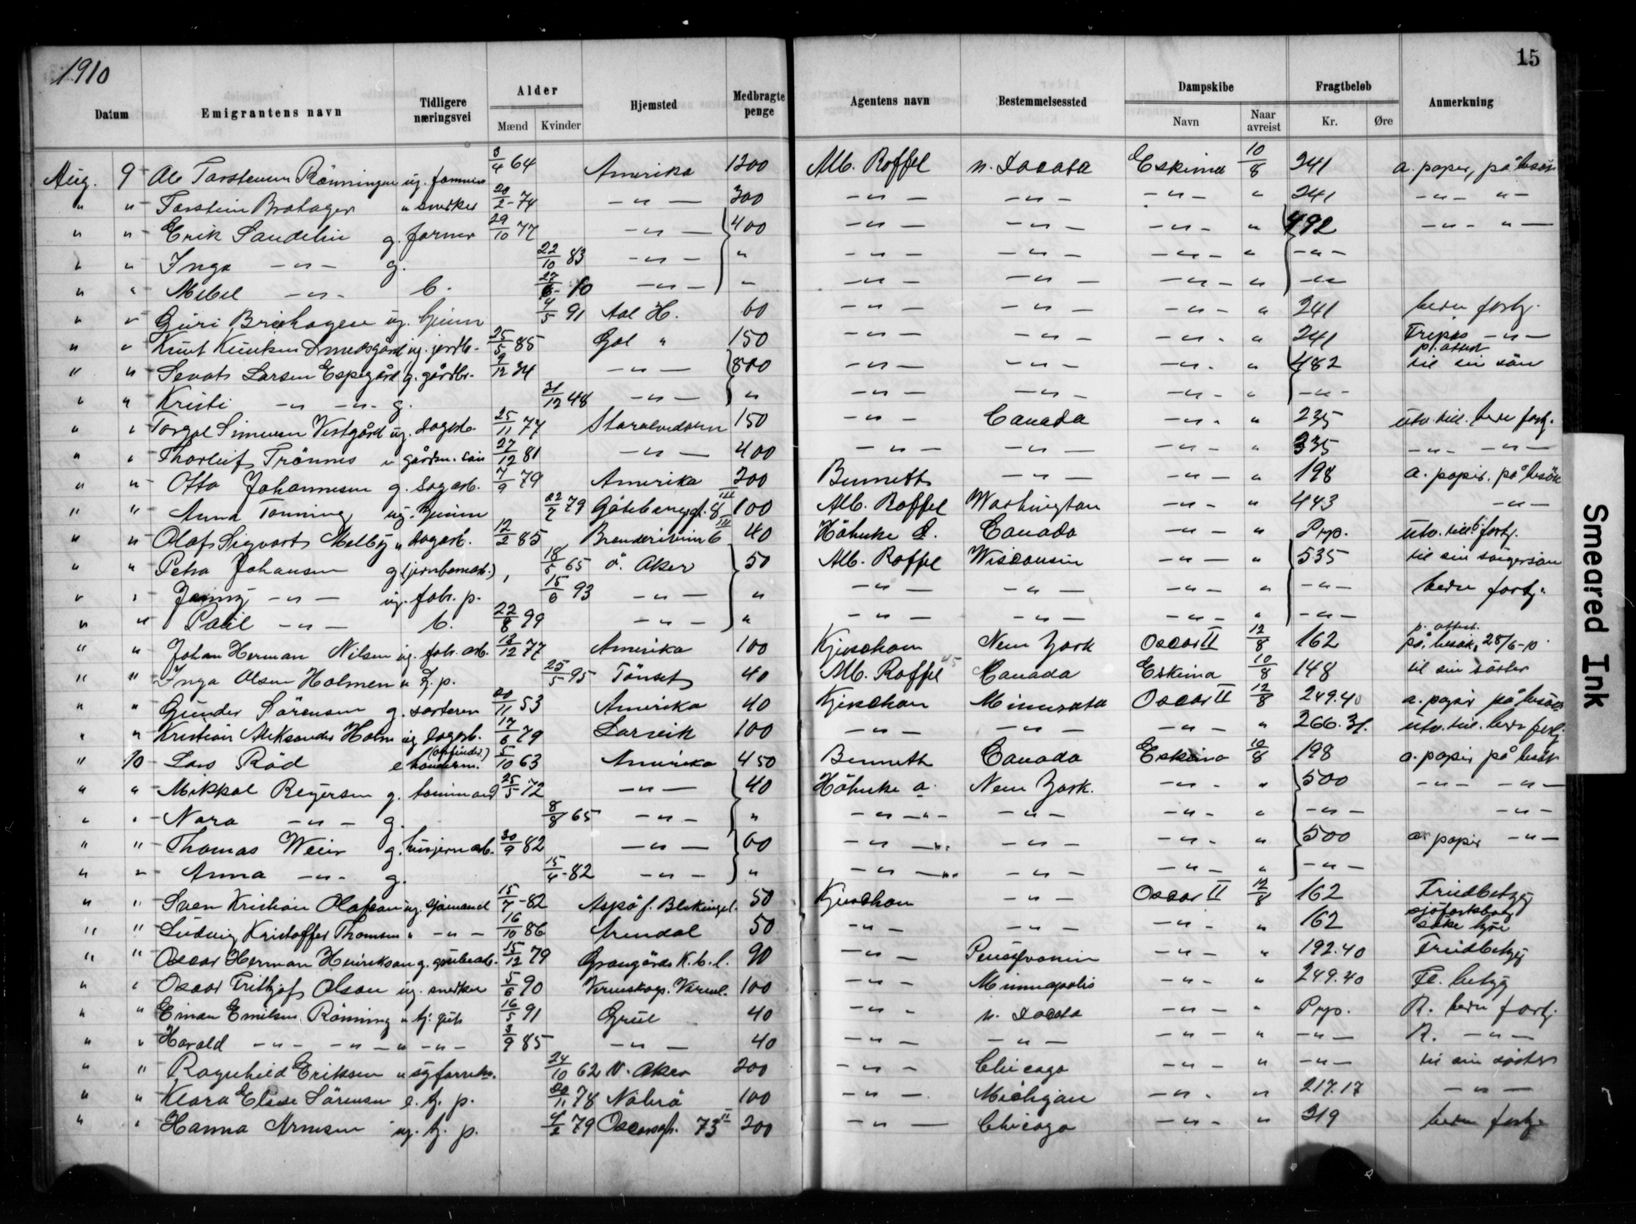 1910
15
Datum Emigrantens navn Tidligere næringsvei Alder Mænd Kvinder Hjemsted Medbragte penge Agentens navn Bestemmelsessted Dampskibe Navn Naar avreist Fragtbeløb Kr. Øre Anmerkning
Aug. 9 Ole Torstensen Rønningen ug. farmer 3/4 64 Amerika 1200 Alb. Roffel n. Dacota Eskimo 10/8 241 a. papir, på besøk
" " Torstein Bratager " snekker 20/2 - 74 - " - 300 - " - - " - - " - " 241 - " - " -
" " Erik Sandelin g. farmer 29/10 77 - " - 400 - " - - " - - " - " 492 - " - " -
" " Inga - " - g. 22/10 83 - " - " - " - - " - - " - " - " -
" " Mebel - " - b. 27/6 - 10 - " - " - " - - " - - " - " - " -
" " Guri Brekhagen ug. hjem 4/5 91 Aal H. 60 - " - - " - - " - " 241 bedre fortj.
" " Knut Knutsen ug. jordb. 25/5 85 Gol " 150 - " - - " - - " - " 241 - " -
" " Sevat Larsen Espegård g. gårdbr. 9/12 34 - " - 800 - " - - " - - " - " 482 til sin sön
" " Kristi - " - " - g. 31/12 48 - " - " - " - - " - - " - " - " -
" " Torgal Simensen Vestgård ug. dagarb. 25/11 77 Storelvedalen 150 - " - Canada - " - " 235 utv. till. bedre fortj.
" " Thorleif Trønnes " gårdm. sön 27/12 81 - " - 400 - " - - " - - " - " 335 - " - - " -
" " Otto Johannesen g. dagarb. 7/9 79 Amerika 200 Bennett - " - - " - " 198 a. papir. på besök
" " Anna Tonning ug. hjem 22/2 79 Göteborggt. 8 III 100 Alb. Roffel Washington - " - " 443 - " -
" " Olaf Sigvart Melby " dagarb. 12/2 85 40 Höhnke A. Canada - " - " Prp. utv. till. b. fortj.
" " Petra Johansen g (jernbanearb.) 18/5 65 Ö. Aker 50 Alb. Roffel Wisconsin - " - " 535 til sin svigersön
" " Jenny - " - ug. fabr. p. 15/6 93 - " - " - " - - " - - " - " - " - bedre fortj.
" " Paul - " - b. 22/8 99 - " - " - " - - " - - " - " - " -
" " Johan Herman Nilsen ug. fabr. arb. 12/12 77 Amerika 100 Kjerschow New York Oscar II 12/8 162 p. attest. på besök 28/6-10
" " Inga Olsen Holmen " tj. p. 25/5 95 Tönset 40 Alb. Roffel Canada Eskimo 10/8 148 til sin söster
" " Gunder Sörensen g. sorterer 20/11 53 Amerika 40 Kjerschow Minnesota Oscar II 12/8 249.40 a. papir på besök
" " Kristian Aleksander Holm ug dagarb. 17/6 79 Larvik 100 - " - - " - - " - " 266.31. utv. till. bedre fortj.
" 10 Lars Röd e 5/10 63 Amerika 450 Bennett Canada Eskimo 10/8 198 a. papir på besök
" " Mikkal Reiersen g. tömmerm. 25/5 - 72 - " - 40 Höhnke a. New York. - " - " 500 - " - - " -
" " Nora - " - g. 8/8 65 - " - " - " - " - - " - - " - " - " - - " -
" " Thomas Weir g. 30/9 82 - " - 60 - " - " - - " - - " - " 500 a. papir - " -
" " Anna - " - g. 15/4 - 82 - " - " - " - " - - " - - " - " - " -
" " Sven Kristian Olafson ug. sjömand 15/7 - 82 Aspö f. Blekingel. 50 Kjerschow - " - Oscar II 12/8 162 Friedbetyg
" " Ludvig Kristoffer Thomsen " - " - 16/10 86 Arendal 50 - " - - " - - " - " 162 söke hyre
" " Oscar Herman Henrikson g. grubearb. 15/12 79 Grangärde K. b. l. 90 - " - Pensylvanien - " - " 192.40 Friedbetyg
" " Oscar Fritjof Olson ug. snekker 5/6 90 Värml. 100 - " - Minneapolis - " - " 249.40 Fl. betyg
" " Einar Emilsen Rönning " tj. gut 16/5 91 Grue 40 - " - n. Dacota - " - " Prp. A. bedre fortj.
" " Harald - " - - " - " - " - 3/9 85 - " - 40 - " - - " - - " - " - " - A. - " -
" " Ragnhild Eriksen " 24/10 62 V. Aker 200 - " - Chicago - " - " - " - til sin söster
" " Klara Elise Sörensen e. tj. p. 20/11 78 100 - " - Michigan - " - " 217.17 - " -
" " Hanna Arnesen ug. tj. p. 4/2 79 Oscarsgt. 73 II 200 - " - Chicago - " - " 219 bedre fortj.
Smeared Ink